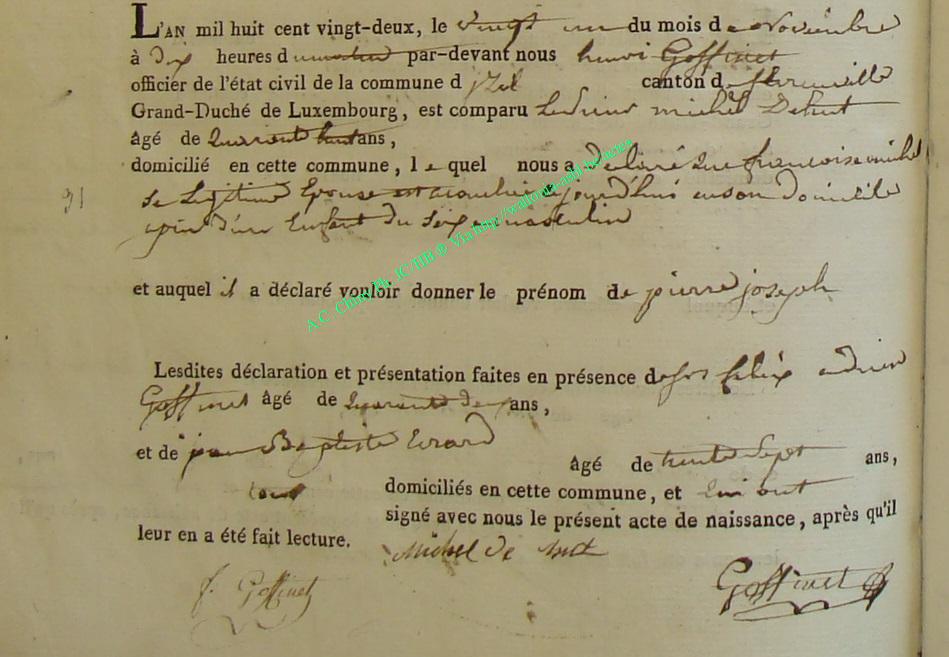 L'AN mil huit cent vingt-deux, le vingt un du mois de Novembre
à Dix heures d par-devant nous henri Goffinet
officier de l'état civil de la commune d jzel canton d florenville
Grand-Duché de Luxembourg, est comparu Le Sieur michel Dehut
âgé de quarante huit ans,
domicilié en cette commune, le quel nous a Declaré que francoise michel
se Legitime Epouse est accouchée aujourd'hui en son Domicile
31
D'un Enfant du Sexe masculin
et auquel il a déclaré vouloir donner le prénom de pierre joseph
Lesdites déclaration et présentation faites en présence de felix adrien
Goffinet âgé de quarante deux ans,
et de jean Baptiste Evrard
âgé de trente Sept ans,
tous domiciliés en cette commune, et qui ont
signé avec nous le présent acte de naissance, après qu'il
leur en a été fait lecture.
Michel de hut
f. Goffinet Goffinet
A.C. Chiny Ph. IC/HB ® Via http://wallonie-and-belactes